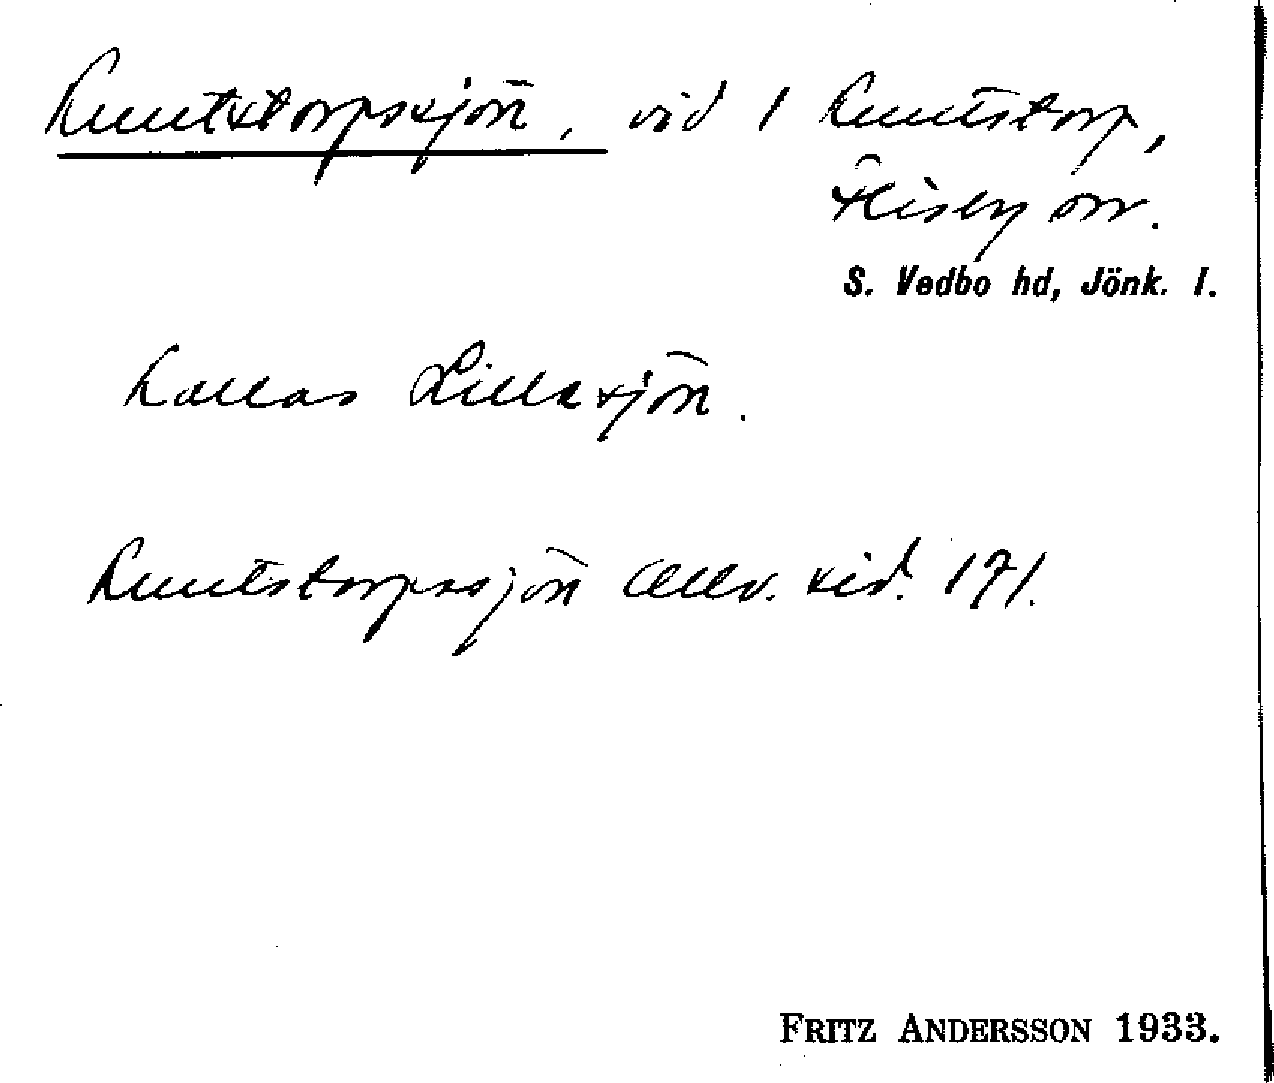 Knutstorpsjön, vid 1 Knutstorp,
Flisby sn.
S. Vedbo hd, Jönk. l.
kallas Lillasjön.
Knutstorpssjön Allv. sid. 171.
FRITZ ANDERSSON 1933.